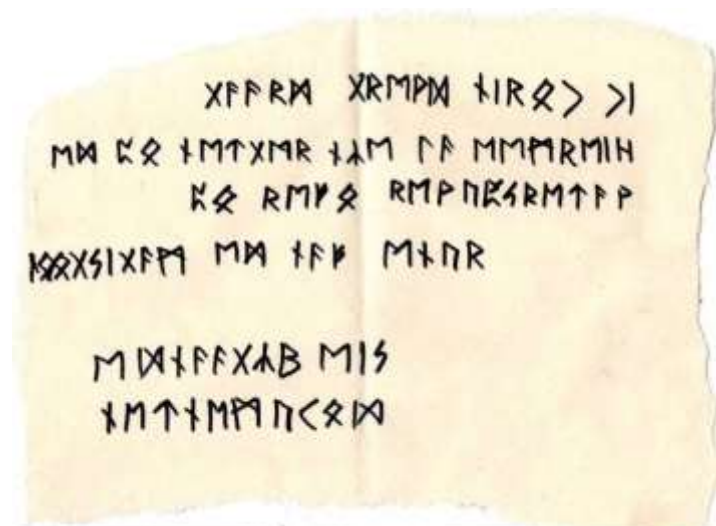 ᚷᚨᚨᚱᛞ ᚷᚱᛖᚹᛞ ᚾᛁᚱᛟᚲ ᚲᛁ
ᛖᛞ ᛈᛟ ᚾᛖᛏᚷᛖᚱ ᚾᛦᛖ ᛚᚨ ᛖᛖᛗᚱᛖᛁᚺ
ᛈᛟ ᚱᛖᚡᛟ ᚱᛖᚹᚢᛈᛋᚱᛖᛏᚨᚹ
ᛖᛞ ᚾᚨᚡ ᛖᚾᚢᚱ
ᛖᛞᚾᚨᚨᚷᛦᛒ ᛖᛁᛋ
ᚾᛖᛏᚾᛖᛗᚢᚲᛟᛞ